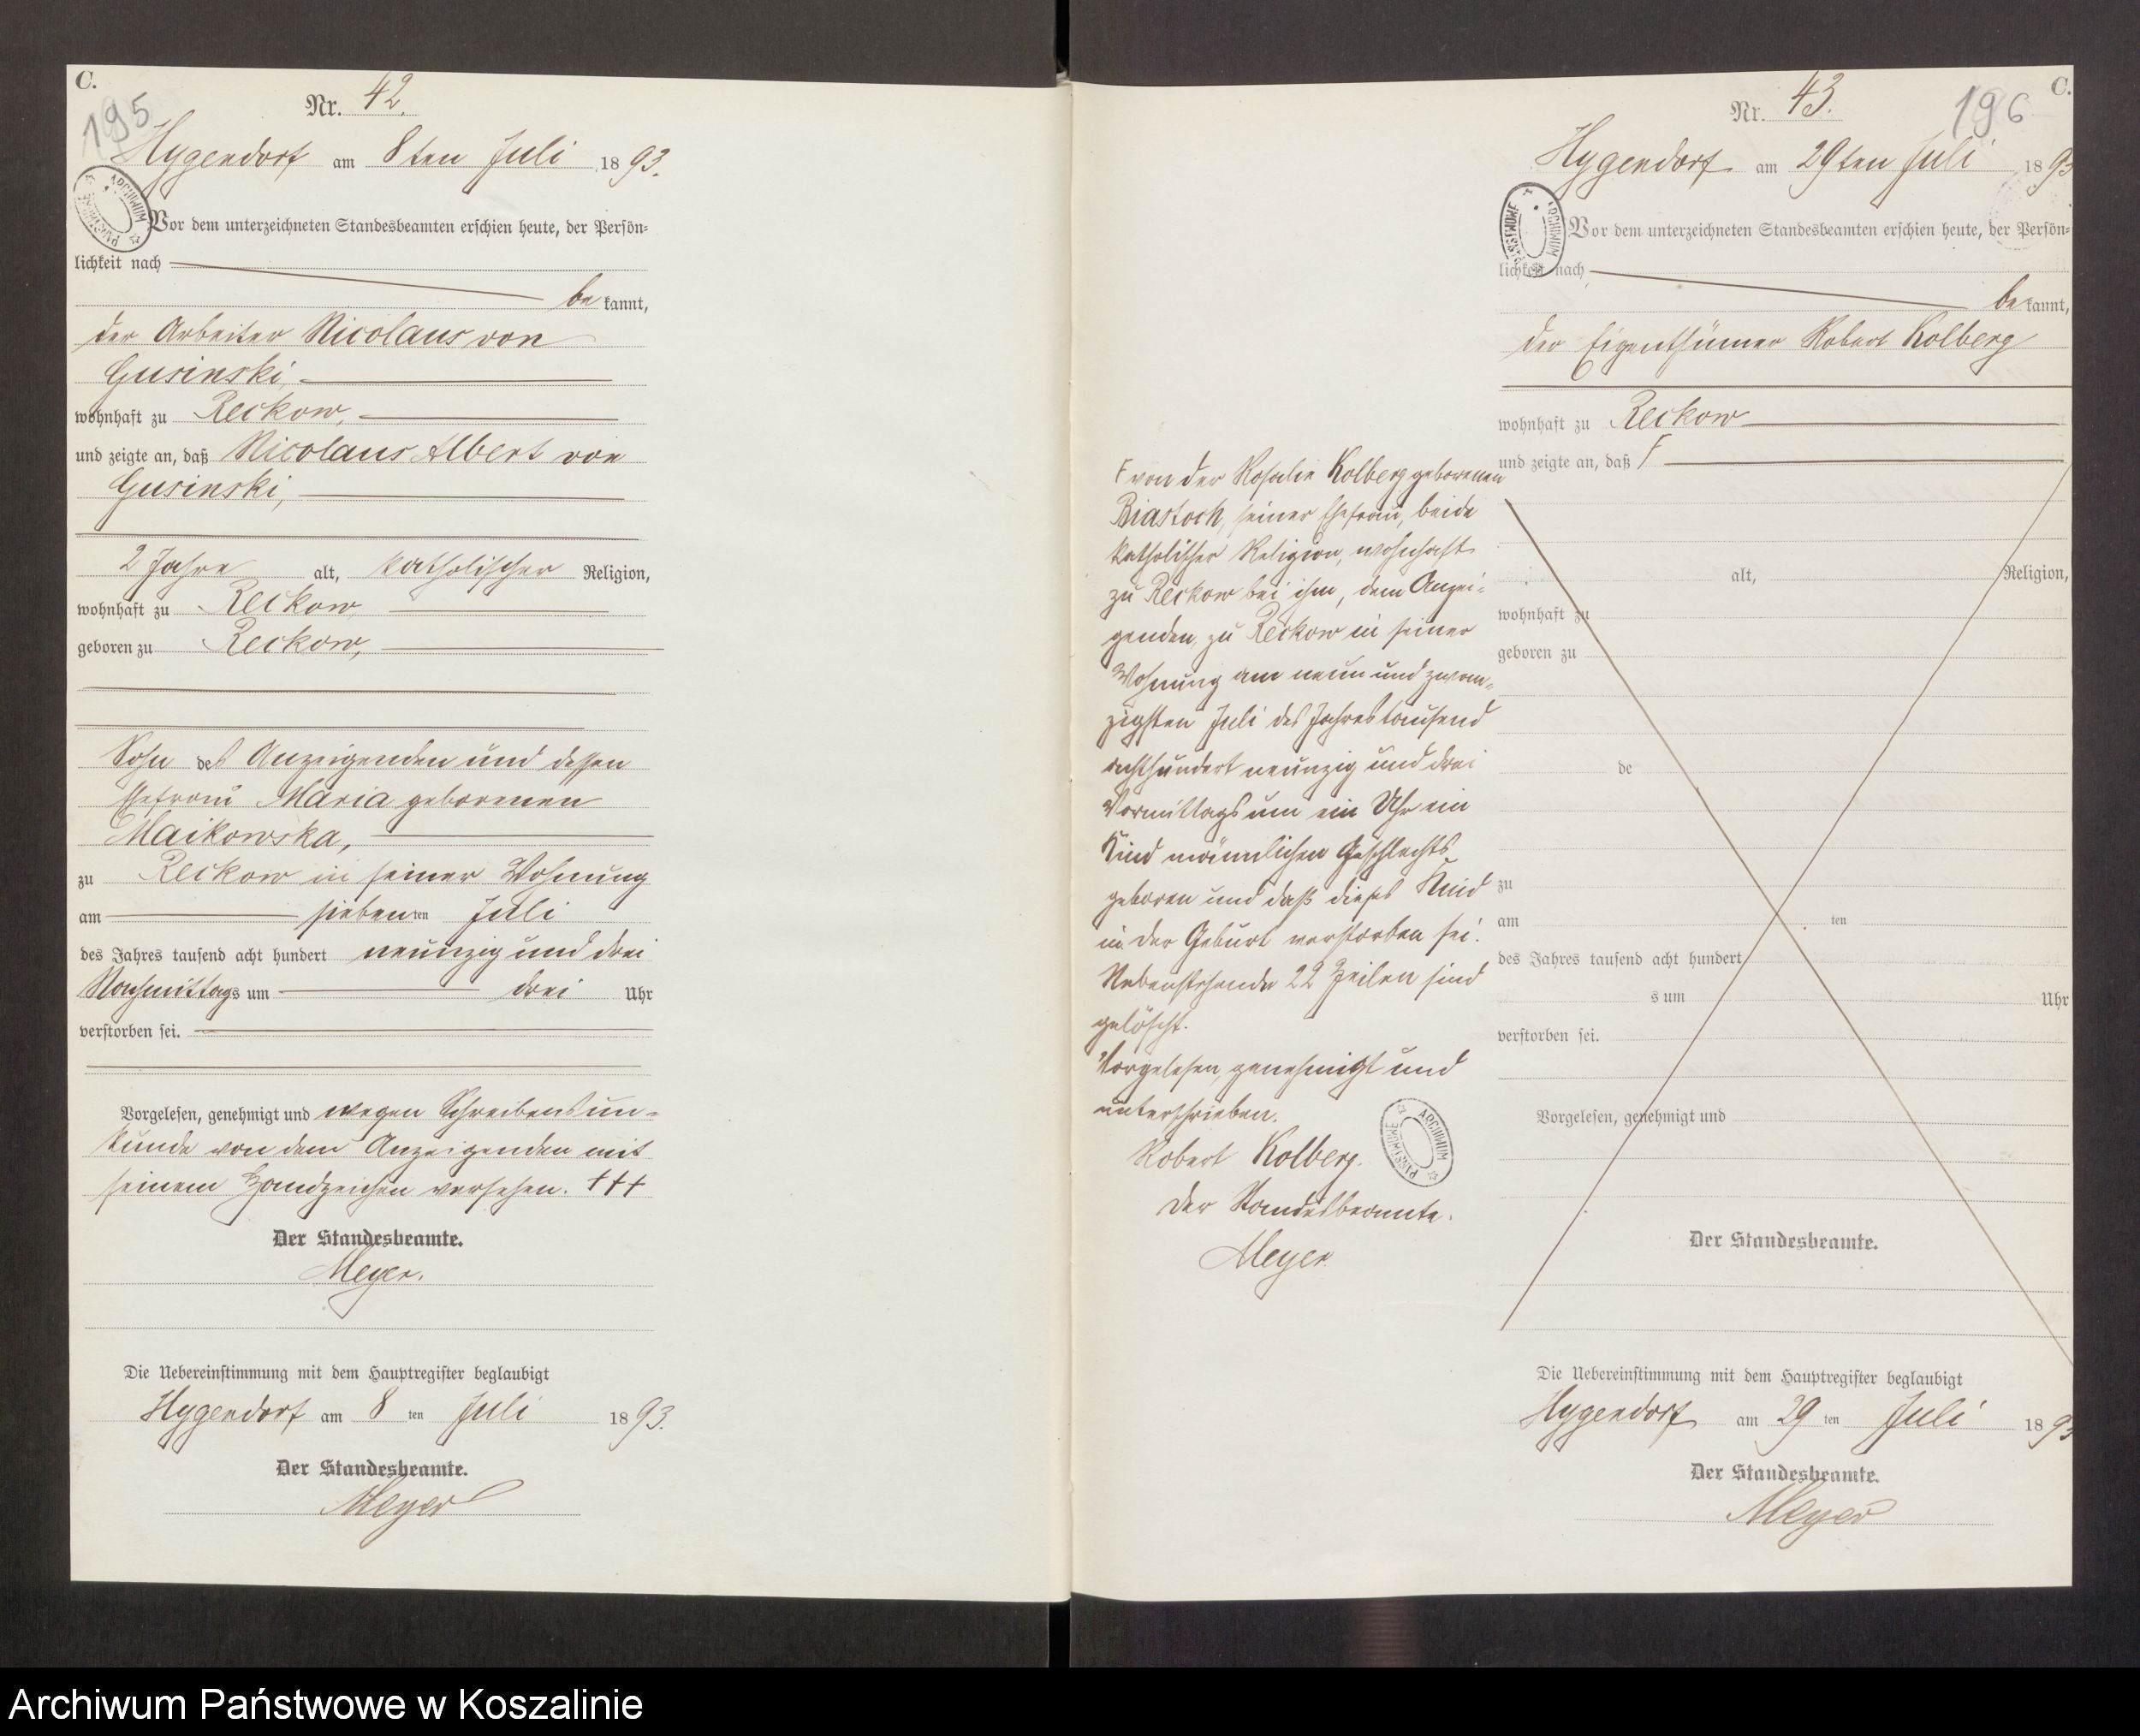 C.
195
Nr. 42.
Hygendorf am 8ten Juli 1893.
ARCHIWUM PAŃSTWOWE
Vor dem unterzeichneten Standesbeamten erschien heute, der Persön-
lichkeit nach
be kannt,
der Arbeiter Nicolaus von
Gusinski,
wohnhaft zu Reckow,
und zeigte an, daß Nicolaus Albert von
Gusinski,
2 Jahre alt, katholischer Religion,
wohnhaft zu Reckow,
geboren zu Reckow,
Sohn des Anzeigenden und dessen
Ehefrau Maria geborenen
Maikowska,
zu Reckow in seiner Wohnung
am siebenten Juli
des Jahres tausend acht hundert neunzig und drei
Nachmittags um drei Uhr
verstorben sei.
Vorgelesen, genehmigt und wegen Schreibensun-
kunde von dem Anzeigenden mit
seinem Handzeichen versehen. +++
Der Standesbeamte.
Meyer.
Die Uebereinstimmung mit dem Hauptregister beglaubigt
Hygendorf am 8 ten Juli 1893.
Der Standesbeamte.
Meyer
C.
196
Nr. 43.
Hygendorf am 29ten Juli 1893
ARCHIWUM PAŃSTWOWE
Vor dem unterzeichneten Standesbeamten erschien heute, der Persön-
lichkeit nach
be kannt,
der Eigenthümer Robert Kolberg
wohnhaft zu Reckow
und zeigte an, daß F
F von der Rosalie Kolberg geborenen
Biastoch, seiner Ehefrau, beide
katholischer Religion, wohnhaft
zu Reckow bei ihm, dem Anzei-
genden, zu Reckow in seiner
Wohnung am neun und zwan-
zigsten Juli des Jahres tausend
achthundert neunzig und drei
Vormittags um ein Uhr ein
Kind männlichen Geschlechts
geboren und daß dieses Kind
in der Geburt verstorben sei.
Nebenstehende 22 Zeilen sind
gelöscht.
Vorgelesen, genehmigt und
unterschrieben.
Robert Kolberg.
ARCHIWUM PAŃSTWOWE
Der Standesbeamte.
Meyer
alt, Religion,
wohnhaft zu
geboren zu
de
zu
am ten
des Jahres tausend acht hundert
s um Uhr
verstorben sei.
Vorgelesen, genehmigt und
Der Standesbeamte.
Die Uebereinstimmung mit dem Hauptregister beglaubigt
Hygendorf am 29 ten Juli 1893
Der Standesbeamte.
Meyer
Archiwum Państwowe w Koszalinie